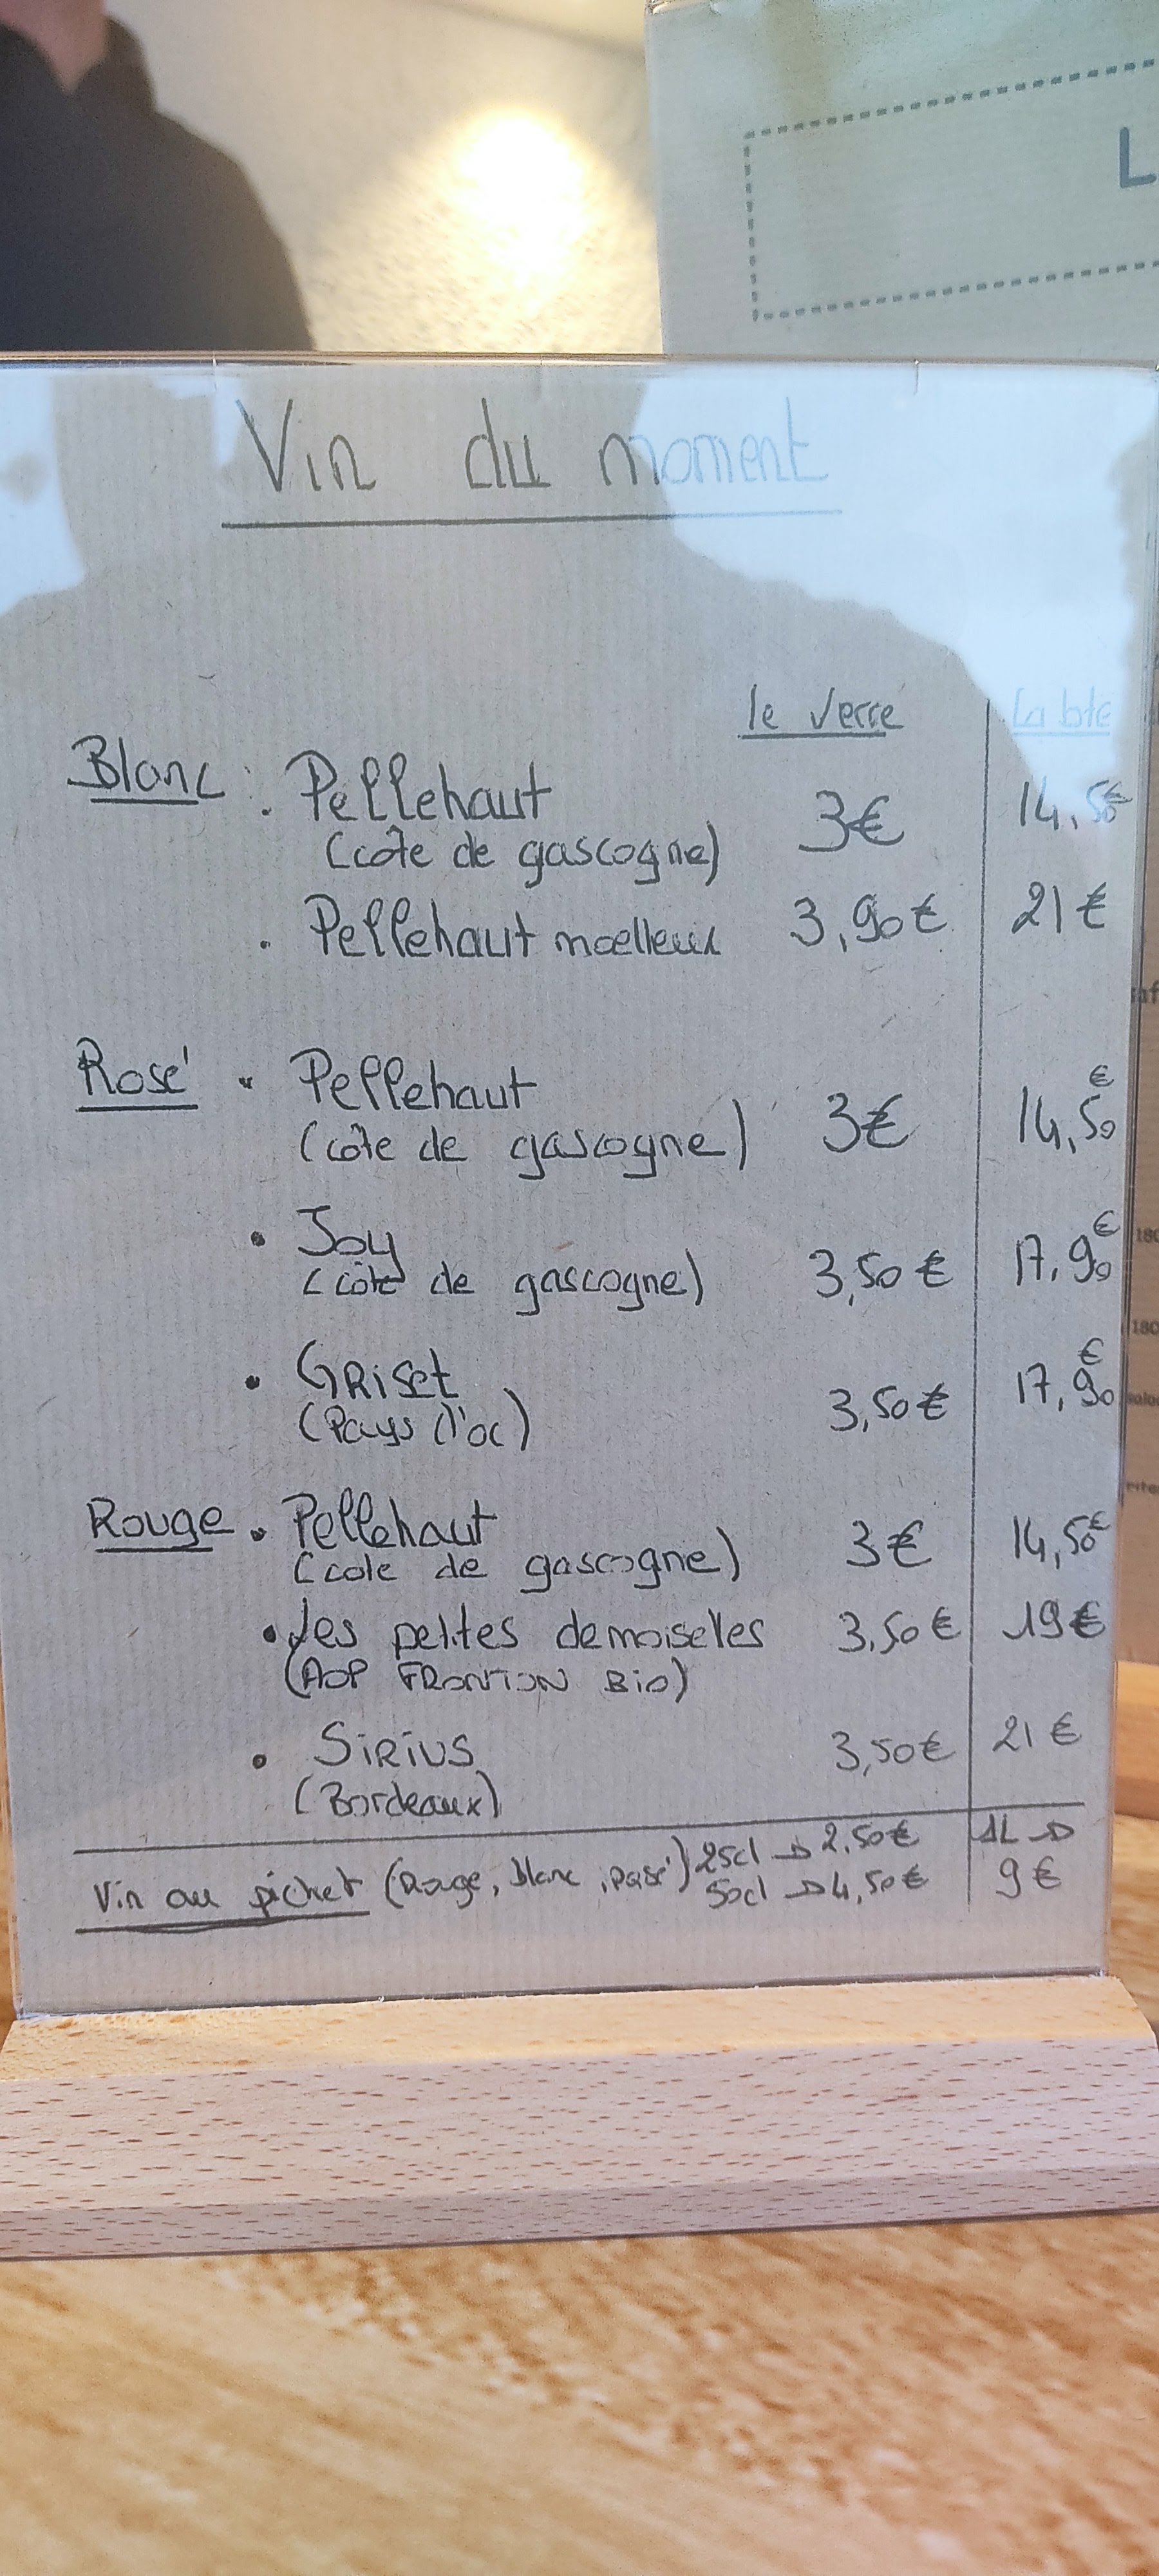 L
Vin du moment
le verre La bte
Blanc : . Pellehaut 3€ 14,50€
(côte de gascogne)
. Pellehaut moelleux 3,90€ 21€
Rosé . Pellehaut 3€ 14,50€
(côte de gascogne)
. Joy
(côte de gascogne) 3,50€ 17,90€
. Griset 17,90€
(Pays d'oc) 3,50€
Rouge . Pellehaut 3€ 14,50€
(cote de gascogne)
. Les petites demoiselles 3,50€ 19€
(AOP FRONTON BiO)
. SiRiUS 3,50€ 21€
(Bordeaux)
Vin au pichet (Rouge, blanc, rosé) 25cl → 2,50€ 1L →
50cl → 4,50€ 9€
180
180